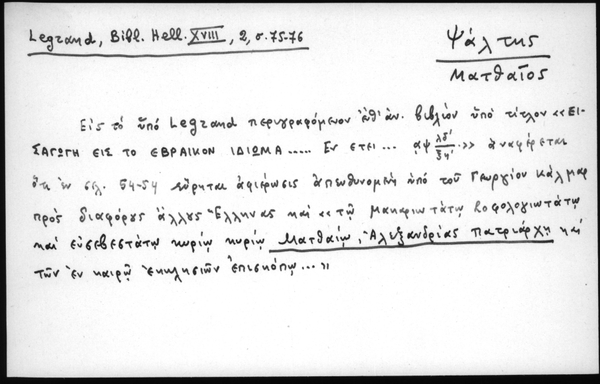 Legrand, Bibl. Hell. XVIII, 2, σ. 75-76
Ψάλτης
Ματθαῖος
Εἰς τό ὑπό Legrand περιγραφόμενον ὑπ' ἀν. βιβλίον ὑπό τίτλον «ΕΙ-
ΣΑΓΩΓΗ ΕΙΣ ΤΟ ΕΒΡΑΙΚΟΝ ΙΔΙΩΜΑ..... Εν ετει... ἀναφέρεται
ὅτι ἐν σελ. 54-54 εὕρηται ἀφιέρωσις ἀπευθυνομένη ἀπό τοῦ Γεωργίου Κάλμαρ
πρὸς διαφόρους ἄλλους Ἕλληνας καί «τῷ Μακαριωτάτῳ Σοφολογιωτάτῳ
καί εὐσεβεστάτῳ κυρίῳ κυρίῳ Ματθαίῳ, Ἀλεξανδρίας πατριάρχῃ καί
τῶν ἐν καιρῷ ἐκκλησιῶν ἐπισκόπῳ...»